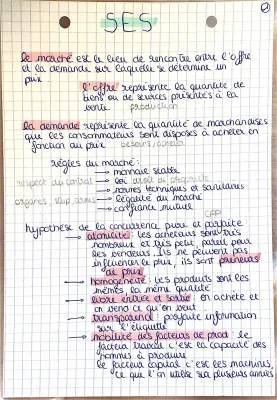 SES
le marché est le lieu de rencontre entre l'offre
et la demande sur laquelle se détermine un
prix
l'offre représente la quantité de
biens ou de services présentés à la
vente production
la demande représente la quantité de marchandises
que les consommateurs sont disposés à acheter en
fonction du prix besoins,
règles du marché :
→ monnaie stable
respect du contrat → loi droit de propriété
→ normes techniques et sanitaires
organes, stup, armes → légalité du marché
→ confiance mutuelle
CPP
hypothèse de la concurrence pure et parfaite
→ atomicité : les acheteurs sont très
nombreux et très petit, pareil pour
les vendeurs, ils ne peuvent pas
influencer le prix, ils sont preneurs
de prix
→ homogénéité : les produits sont les
mêmes, la même qualité
→ libre entrée et sortie : on achète et
on vend ce qu'on veut
→ transparence parfaite information
sur l'étiquette
→ mobilité des facteurs de prod : le
facteur travail c'est la capacité des
hommes à produire
le facteur capital c'est les machines,
ce que l'on utilise sur plusieurs années